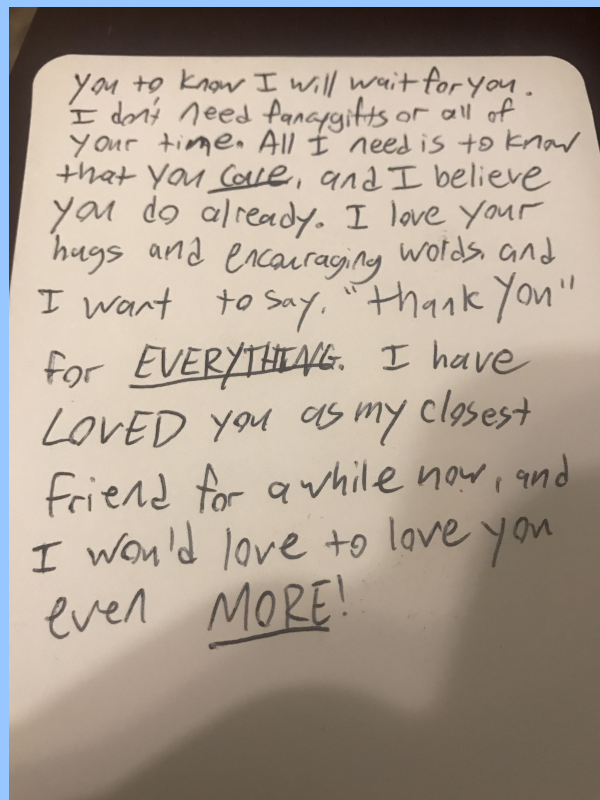 you to know I will wait for you.
I don't need fancy gifts or all of
your time. All I need is to know
that you care, and I believe
you do already. I love your
hugs and encouraging words, and
I want to say, "thank you"
for EVERYTHING. I have
LOVED you as my closest
friend for a while now, and
I wou'd love to love you
even MORE!